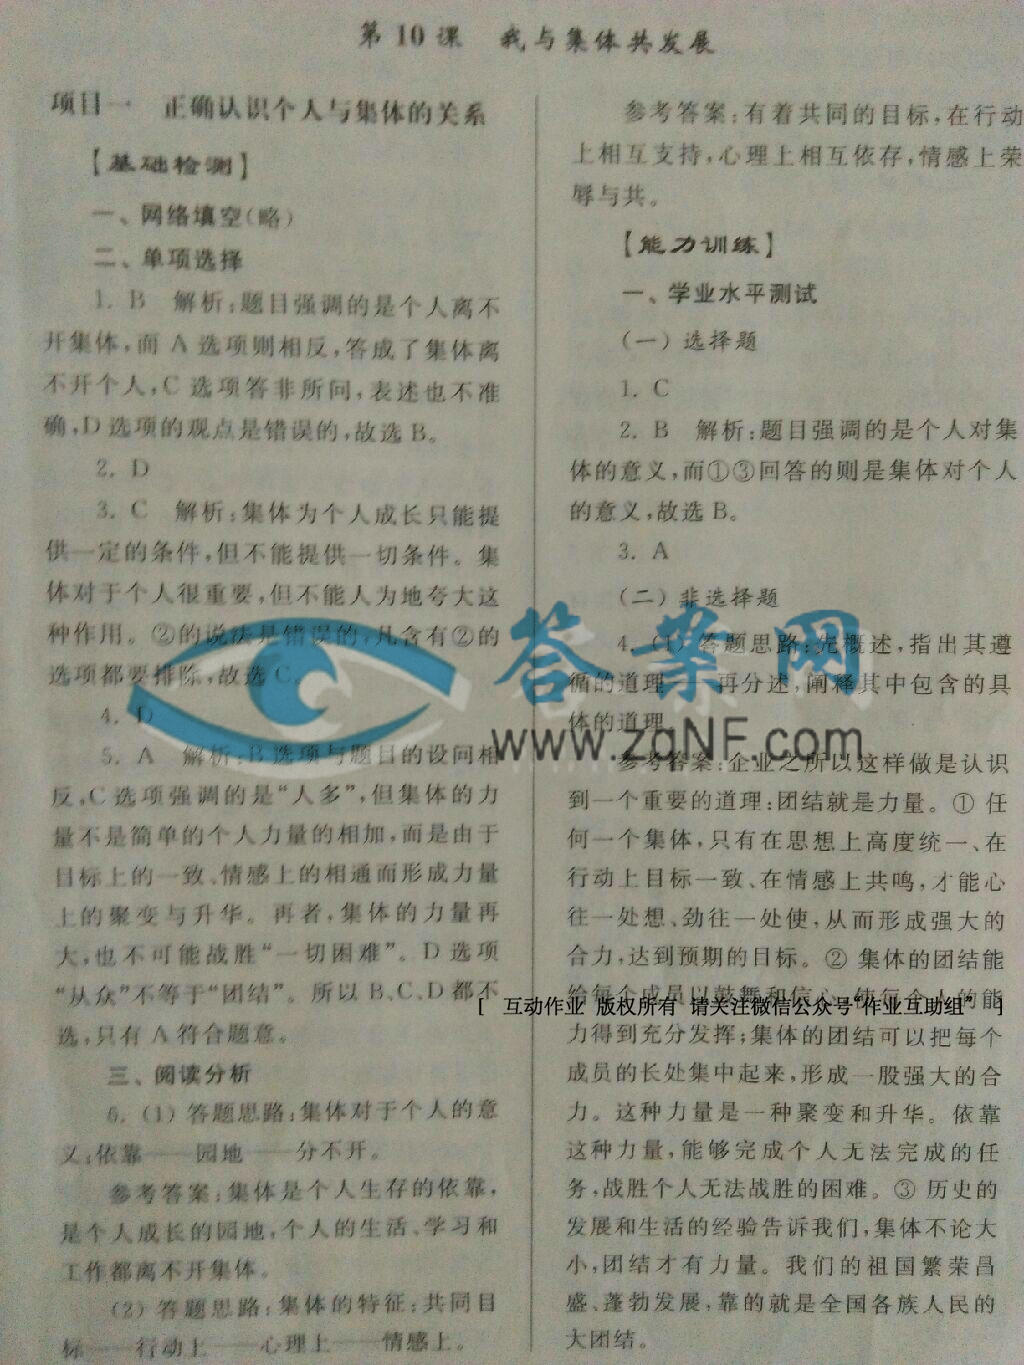 第10课 我与集体共发展
项目一 正确认识个人与集体的关系
【基础检测】
一、网络填空(略)
二、单项选择
1. B 解析:题目强调的是个人离不
开集体,而A选项则相反,答成了集体离
不开个人,C选项答非所问,表述也不准
确,D选项的观点是错误的,故选B。
2. D
3. C 解析:集体为个人成长只能提
供一定的条件,但不能提供一切条件。集
体对于个人很重要,但不能人为地夸大这
种作用。②的说法是错误的,凡含有②的
选项都要排除,故选C。
4. D
5. A 解析:B选项与题目的设问相
反,C选项强调的是“人多”,但集体的力
量不是简单的个人力量的相加,而是由于
目标上的一致、情感上的相通而形成力量
上的聚变与升华。再者,集体的力量再
大,也不可能战胜“一切困难”。D选项
“从众”不等于“团结”。所以B、C、D都不
选,只有A符合题意。
三、阅读分析
6. (1) 答题思路:集体对于个人的意
义:依靠——园地——分不开。
参考答案:集体是个人生存的依靠,
是个人成长的园地,个人的生活、学习和
工作都离不开集体。
(2) 答题思路:集体的特征:共同目
标——行动上——心理上——情感上。
参考答案:有着共同的目标,在行动
上相互支持,心理上相互依存,情感上荣
辱与共。
【能力训练】
一、学业水平测试
(一) 选择题
1. C
2. B 解析:题目强调的是个人对集
体的意义,而①③回答的则是集体对个人
的意义,故选B。
3. A
(二) 非选择题
4. (1) 答题思路:先概述,指出其遵
循的道理——再分述,阐释其中包含的具
体的道理
参考答案:企业之所以这样做是认识
到一个重要的道理:团结就是力量。① 任
何一个集体,只有在思想上高度统一、在
行动上目标一致、在情感上共鸣,才能心
往一处想、劲往一处使,从而形成强大的
合力,达到预期的目标。② 集体的团结能
给每个成员以鼓舞和信心,使每个人的能
力得到充分发挥;集体的团结可以把每个
成员的长处集中起来,形成一股强大的合
力。这种力量是一种聚变和升华。依靠
这种力量,能够完成个人无法完成的任
务,战胜个人无法战胜的困难。③ 历史的
发展和生活的经验告诉我们,集体不论大
小,团结才有力量。我们的祖国繁荣昌
盛、蓬勃发展,靠的就是全国各族人民的
大团结。
答案网
www.zqNF.com
[ 互动作业 版权所有 请关注微信公众号“作业互助组” ]